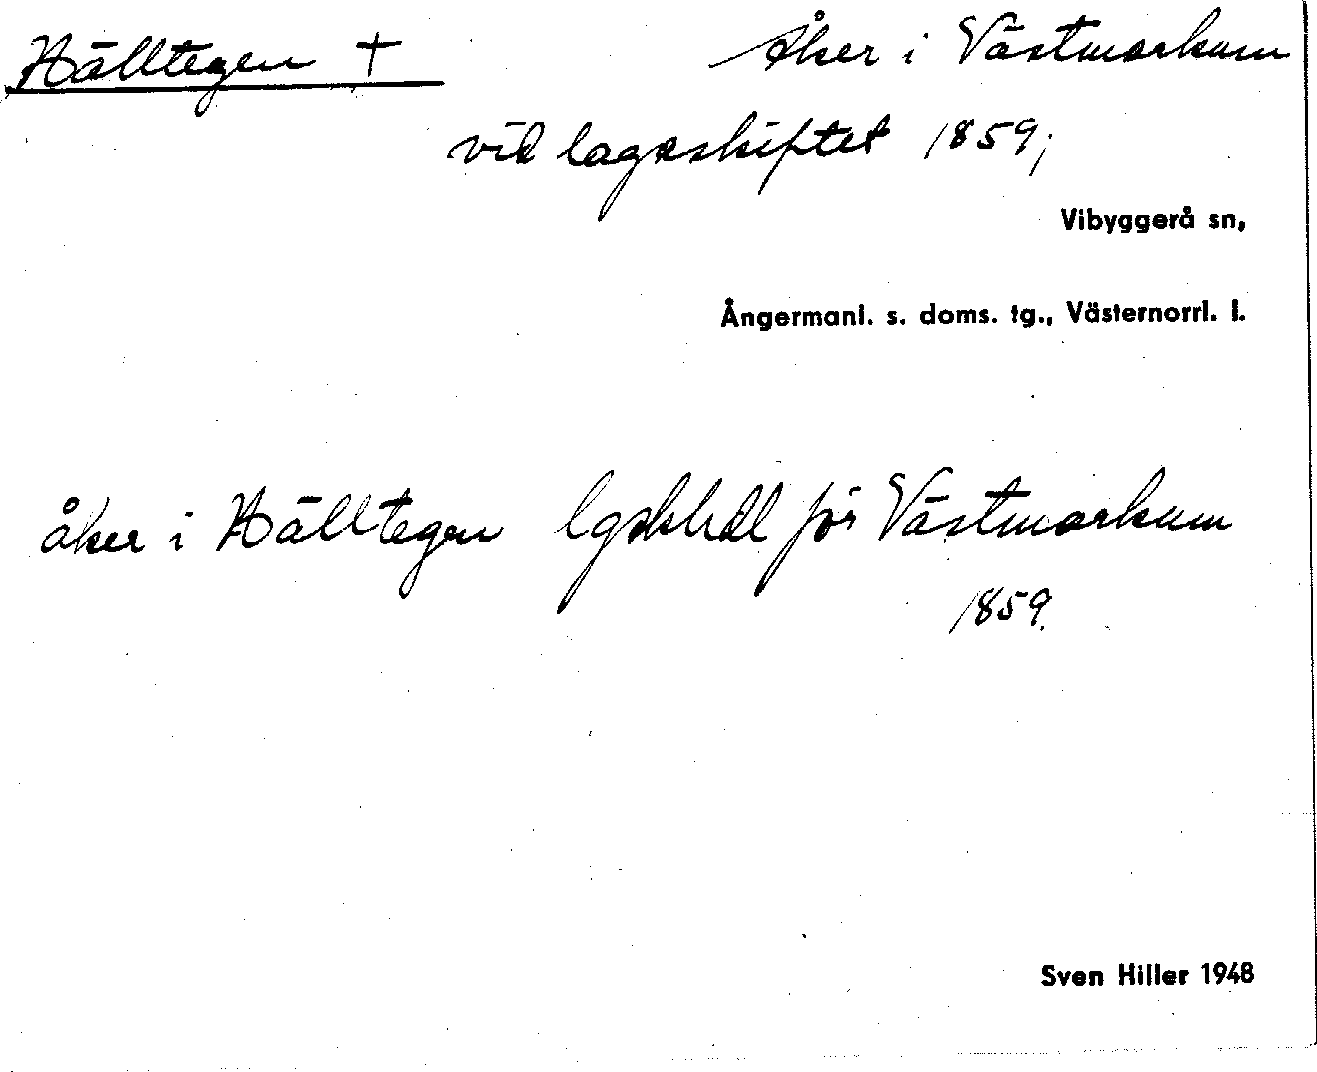 Hälltegen + Åker i Västmarkum
vid lagaskiftet 1859;
Vibyggerå sn,
Ångermanl. s. doms. tg., Västernorrl. l.
åker i Hälltegen lgskhdl för Västmarkum
1859.
Sven Hiller 1948